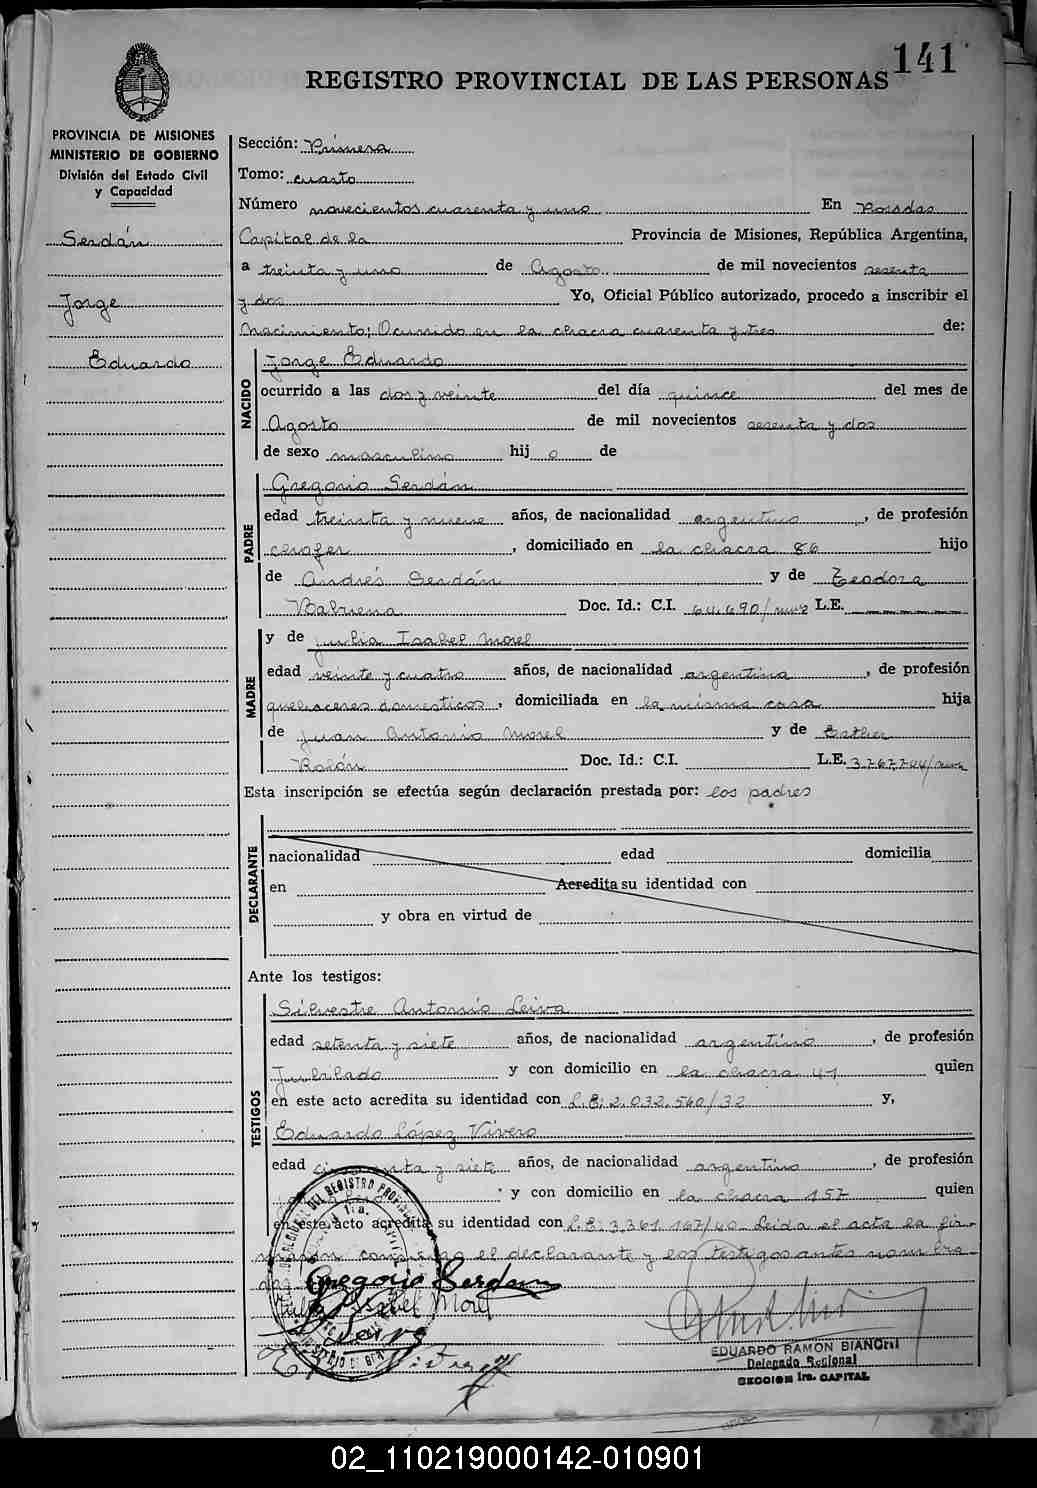 141
REGISTRO PROVINCIAL DE LAS PERSONAS
PROVINCIA DE MISIONES
MINISTERIO DE GOBIERNO
División del Estado Civil
y Capacidad
Serdán
Jorge
Eduardo
Sección: Primera
Tomo: cuarto
Número novecientos cuarenta y uno En Posadas
Capital de la Provincia de Misiones, República Argentina,
a treinta y uno de Agosto de mil novecientos sesenta
y dos Yo, Oficial Público autorizado, procedo a inscribir el
Nacimiento; Ocurrido en la chacra cuarenta y tres de:
NACIDO
Jorge Eduardo
ocurrido a las dos y veinte del día quince del mes de
Agosto de mil novecientos sesenta y dos
de sexo masculino hij o de
PADRE
Gregorio Serdán
edad treinta y nueve años, de nacionalidad argentino, de profesión
chofer, domiciliado en la chacra 86 hijo
de Andrés Serdán y de Teodora
Balruena Doc. Id.: C.I. 64.690/mnes L.E.
MADRE
y de Julia Isabel Morel
edad veinte y cuatro años, de nacionalidad argentina, de profesión
quehaceres domésticos, domiciliada en la misma casa hija
de Juan Antonio Morel y de Esther
Rolón Doc. Id.: C.I. L.E. 3.767.744/mnes
Esta inscripción se efectúa según declaración prestada por: los padres
DECLARANTE
nacionalidad edad domicilia
en Acredita su identidad con
y obra en virtud de
Ante los testigos:
TESTIGOS
Silvestre Antonio Leiva
edad setenta y siete años, de nacionalidad argentino, de profesión
Jubilado y con domicilio en la chacra 41 quien
en este acto acredita su identidad con L.E: 2.032.560/32 y,
Eduardo López Vivero
edad cincuenta y siete años, de nacionalidad argentino, de profesión
y con domicilio en la chacra 157 quien
en este acto acredita su identidad con L.E: 3.361.167/40 Leida el acta la fir-
maron conmigo el declarante y los testigos antes nombra-
dos
Gregorio Serdan
Julia Isabel Morel
Leiva
EDUARDO RAMON BIANCHI
Delegado Regional
SECCION 1ra. CAPITAL
02_110219000142-010901